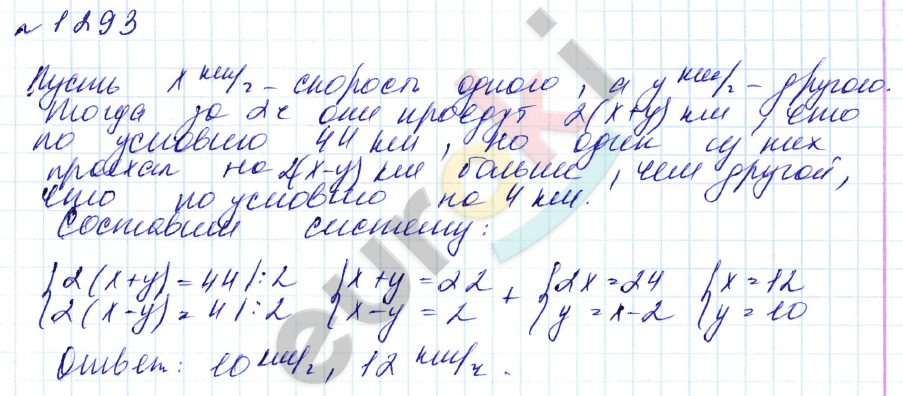 № 1293
Пусть x км/ч – скорость одного, а y км/ч – другого.
Тогда за 2ч они проедут 2(x+y) км, что
по условию 44 км, но один из них
проехал на 2(x-y) км больше, чем другой,
что по условию на 4 км.
Составим систему:
{2(x+y)=44 |:2 {x+y=22 + {2x=24 {x=12
{2(x-y)=4 |:2 {x-y=2 {y=x-2 {y=10
Ответ: 10 км/ч, 12 км/ч.
euroki